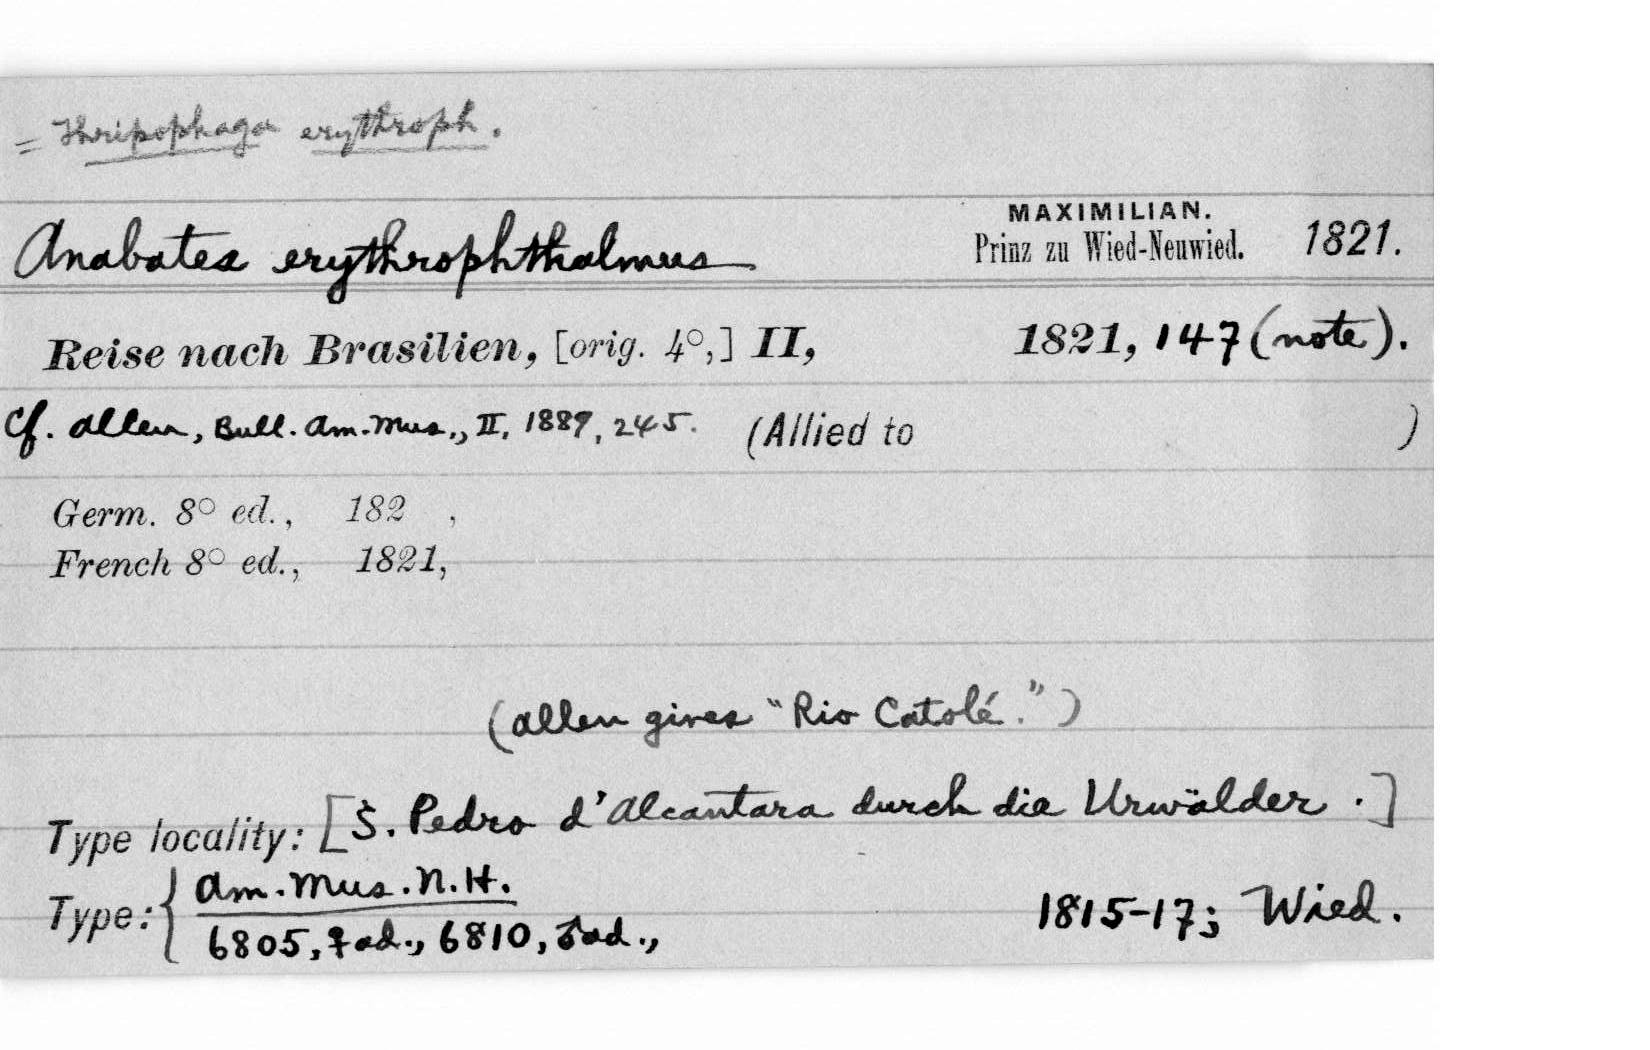 = Thripophaga erythroph.
Anabates erythrophthalmus MAXIMILIAN. Prinz zu Wied-Neuwied. 1821.
Reise nach Brasilien, [orig. 4°,] II, 1821, 147 (note).
Cf. Allen, Bull. Am. Mus., II, 1889, 245. (Allied to )
Germ. 8° ed., 182 ,
French 8° ed., 1821,
(Allen gives "Rio Catolé.")
Type locality: [S. Pedro d'Alcantara durch die Urwälder.]
Type: { Am. Mus. N. H.
6805, ♀ ad., 6810, ♂ ad., 1815-17; Wied.